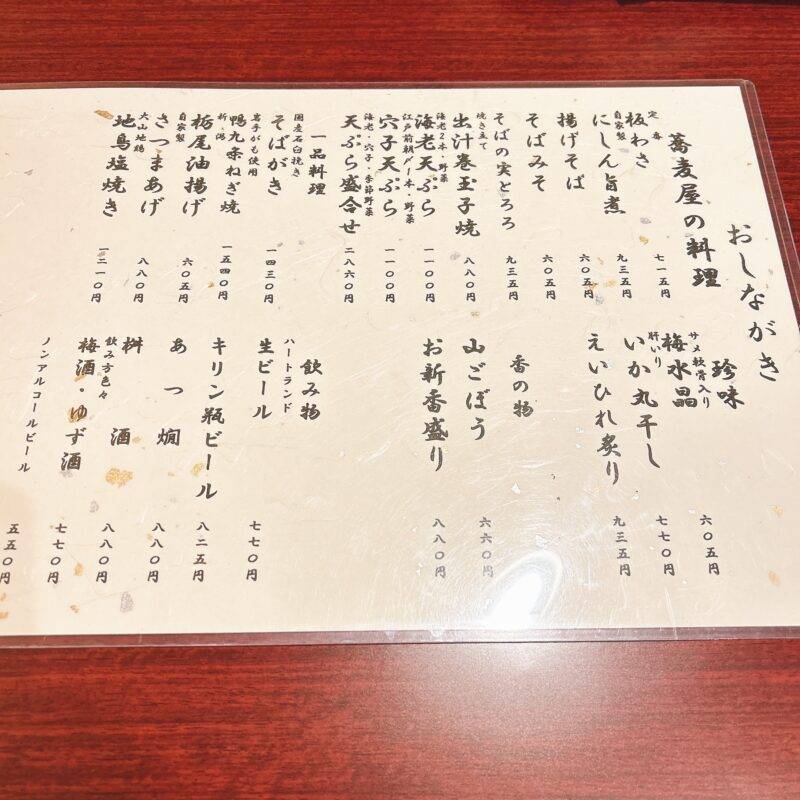 おしながき
蕎麦屋の料理
定番
板わさ 七一五円
自家製
にしん旨煮 九三五円
揚げそば 六〇五円
そばみそ 六〇五円
そばの実とろろ 九三五円
焼き立て
出汁巻玉子焼 八八〇円
海老2本・野菜
海老天ぷら 一一〇〇円
江戸前朝〆一本・野菜
穴子天ぷら 一一〇〇円
海老・穴子・季節野菜
天ぷら盛合せ 二八六〇円
一品料理
国産石臼挽き
そばがき 一四三〇円
岩手がも使用
鴨九条ねぎ焼 一五四〇円
新・潟
栃尾油揚げ 六〇五円
自家製
さつまあげ 八八〇円
大山地鶏
地鳥塩焼き 一二一〇円
珍味
サメ軟骨入り
梅水晶 六〇五円
肝いり
いか丸干し 七七〇円
えいひれ炙り 九三五円
香の物
山ごぼう 六六〇円
お新香盛り 八八〇円
飲み物
ハートランド
生ビール 七七〇円
キリン瓶ビール 八二五円
あつ燗 八八〇円
桝酒 八八〇円
飲み方色々
梅酒・ゆず酒 七七〇円
ノンアルコールビール 五五〇円